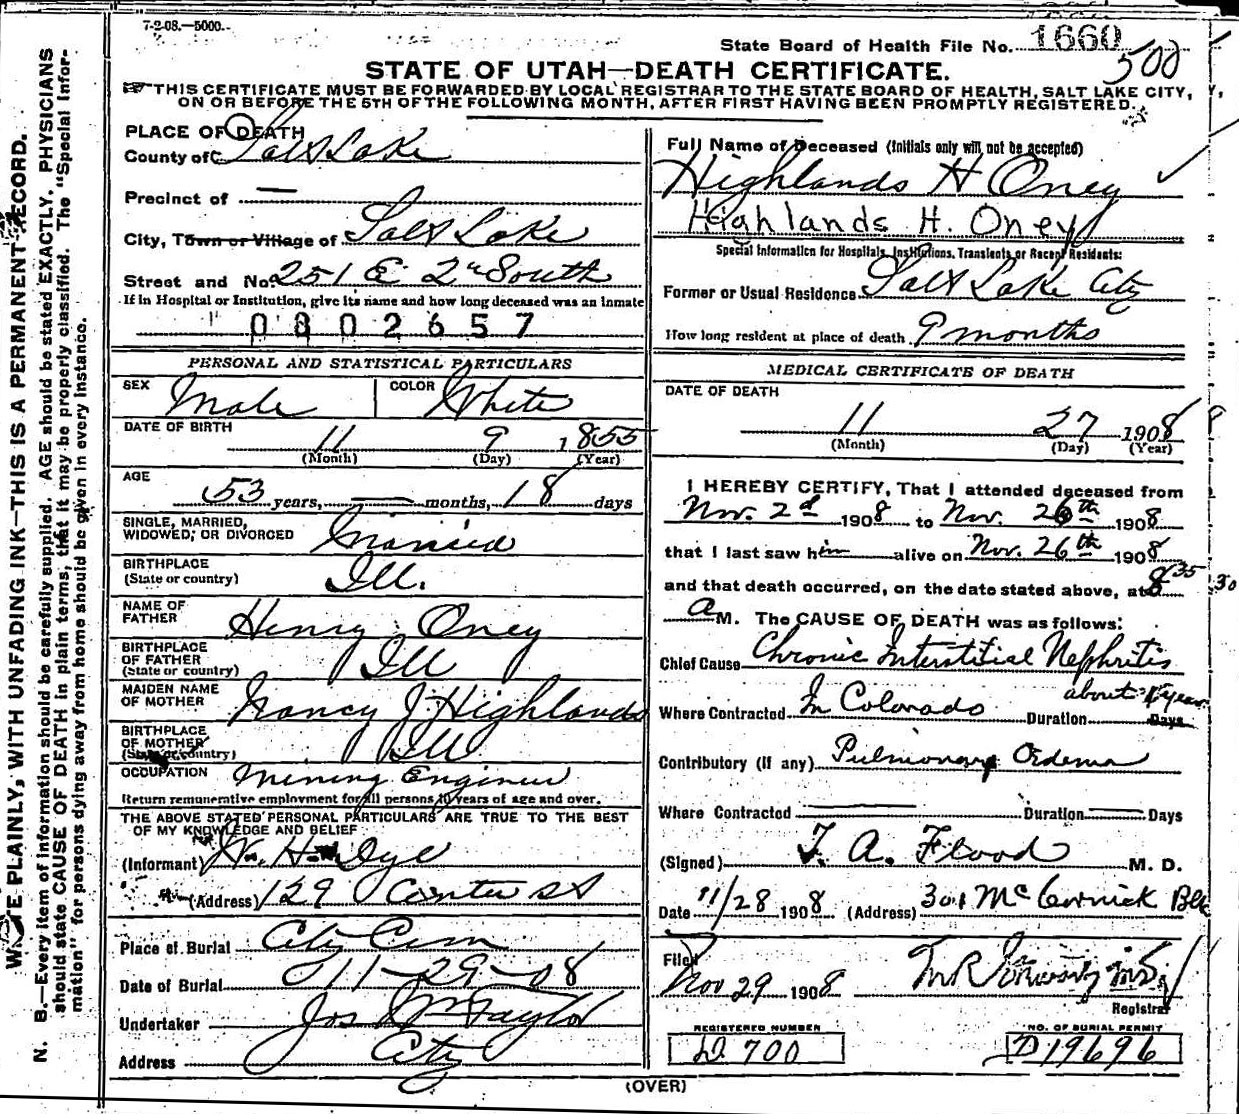 7-2-08.—5000.
State Board of Health File No. 1660
500
STATE OF UTAH—DEATH CERTIFICATE.
THIS CERTIFICATE MUST BE FORWARDED BY LOCAL REGISTRAR TO THE STATE BOARD OF HEALTH, SALT LAKE CITY,
ON OR BEFORE THE 5TH OF THE FOLLOWING MONTH, AFTER FIRST HAVING BEEN PROMPTLY REGISTERED.
PLACE OF DEATH
County of Salt Lake
Precinct of —
City, Town or Village of Salt Lake
Street and No. 251 E 2nd South
If in Hospital or Institution, give its name and how long deceased was an inmate
0802657
PERSONAL AND STATISTICAL PARTICULARS
SEX Male COLOR White
DATE OF BIRTH 11 9 1855
(Month) (Day) (Year)
AGE 53 years, — months, 18 days
SINGLE, MARRIED,
WIDOWED, OR DIVORCED Married
BIRTHPLACE
(State or country) Ill.
NAME OF
FATHER Henry Oney
BIRTHPLACE
OF FATHER
(State or country) Ill
MAIDEN NAME
OF MOTHER Nancy J Highlands
BIRTHPLACE
OF MOTHER
(State or country) Ill
OCCUPATION Mining Engineer
Return remunerative employment for all persons 10 years of age and over.
THE ABOVE STATED PERSONAL PARTICULARS ARE TRUE TO THE BEST
OF MY KNOWLEDGE AND BELIEF
(Informant) Wm. H. Dye
(Address) 129 Center St
Place of Burial City Cem
Date of Burial 11-29-08
Undertaker Jos Wm Taylor
Address City
Full Name of Deceased (Initials only will not be accepted)
Highlands H Oney
Highlands H. Oney
Special Information for Hospitals, Institutions, Transients or Recent Residents:
Former or Usual Residence Salt Lake City
How long resident at place of death 9 months
MEDICAL CERTIFICATE OF DEATH
DATE OF DEATH
11 27 1908
(Month) (Day) (Year)
I HEREBY CERTIFY, That I attended deceased from
Nov. 2d 1908 to Nov. 26th 1908
that I last saw him alive on Nov. 26th 1908
and that death occurred, on the date stated above, at 8 35
a M. The CAUSE OF DEATH was as follows:
Chief Cause Chronic Interstitial Nephritis
Where Contracted In Colorado Duration about year Days
Contributory (if any) Pulmonary Oedema
Where Contracted — Duration — Days
(Signed) F. A. Flood M. D.
Date 11/28 1908 (Address) 301 McCornick Blk
Filed
Nov 29 1908
Registrar
REGISTERED NUMBER
D. 700
NO. OF BURIAL PERMIT
D19696
(OVER)
WRITE PLAINLY, WITH UNFADING INK—THIS IS A PERMANENT RECORD.
N. B.—Every item of information should be carefully supplied. AGE should be stated EXACTLY. PHYSICIANS
should state CAUSE OF DEATH in plain terms, that it may be properly classified. The "Special Infor-
mation" for persons dying away from home should be given in every instance.